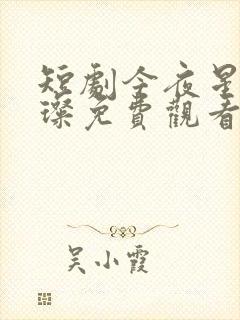 短劇今夜星
璨免費觀看
吴小霞